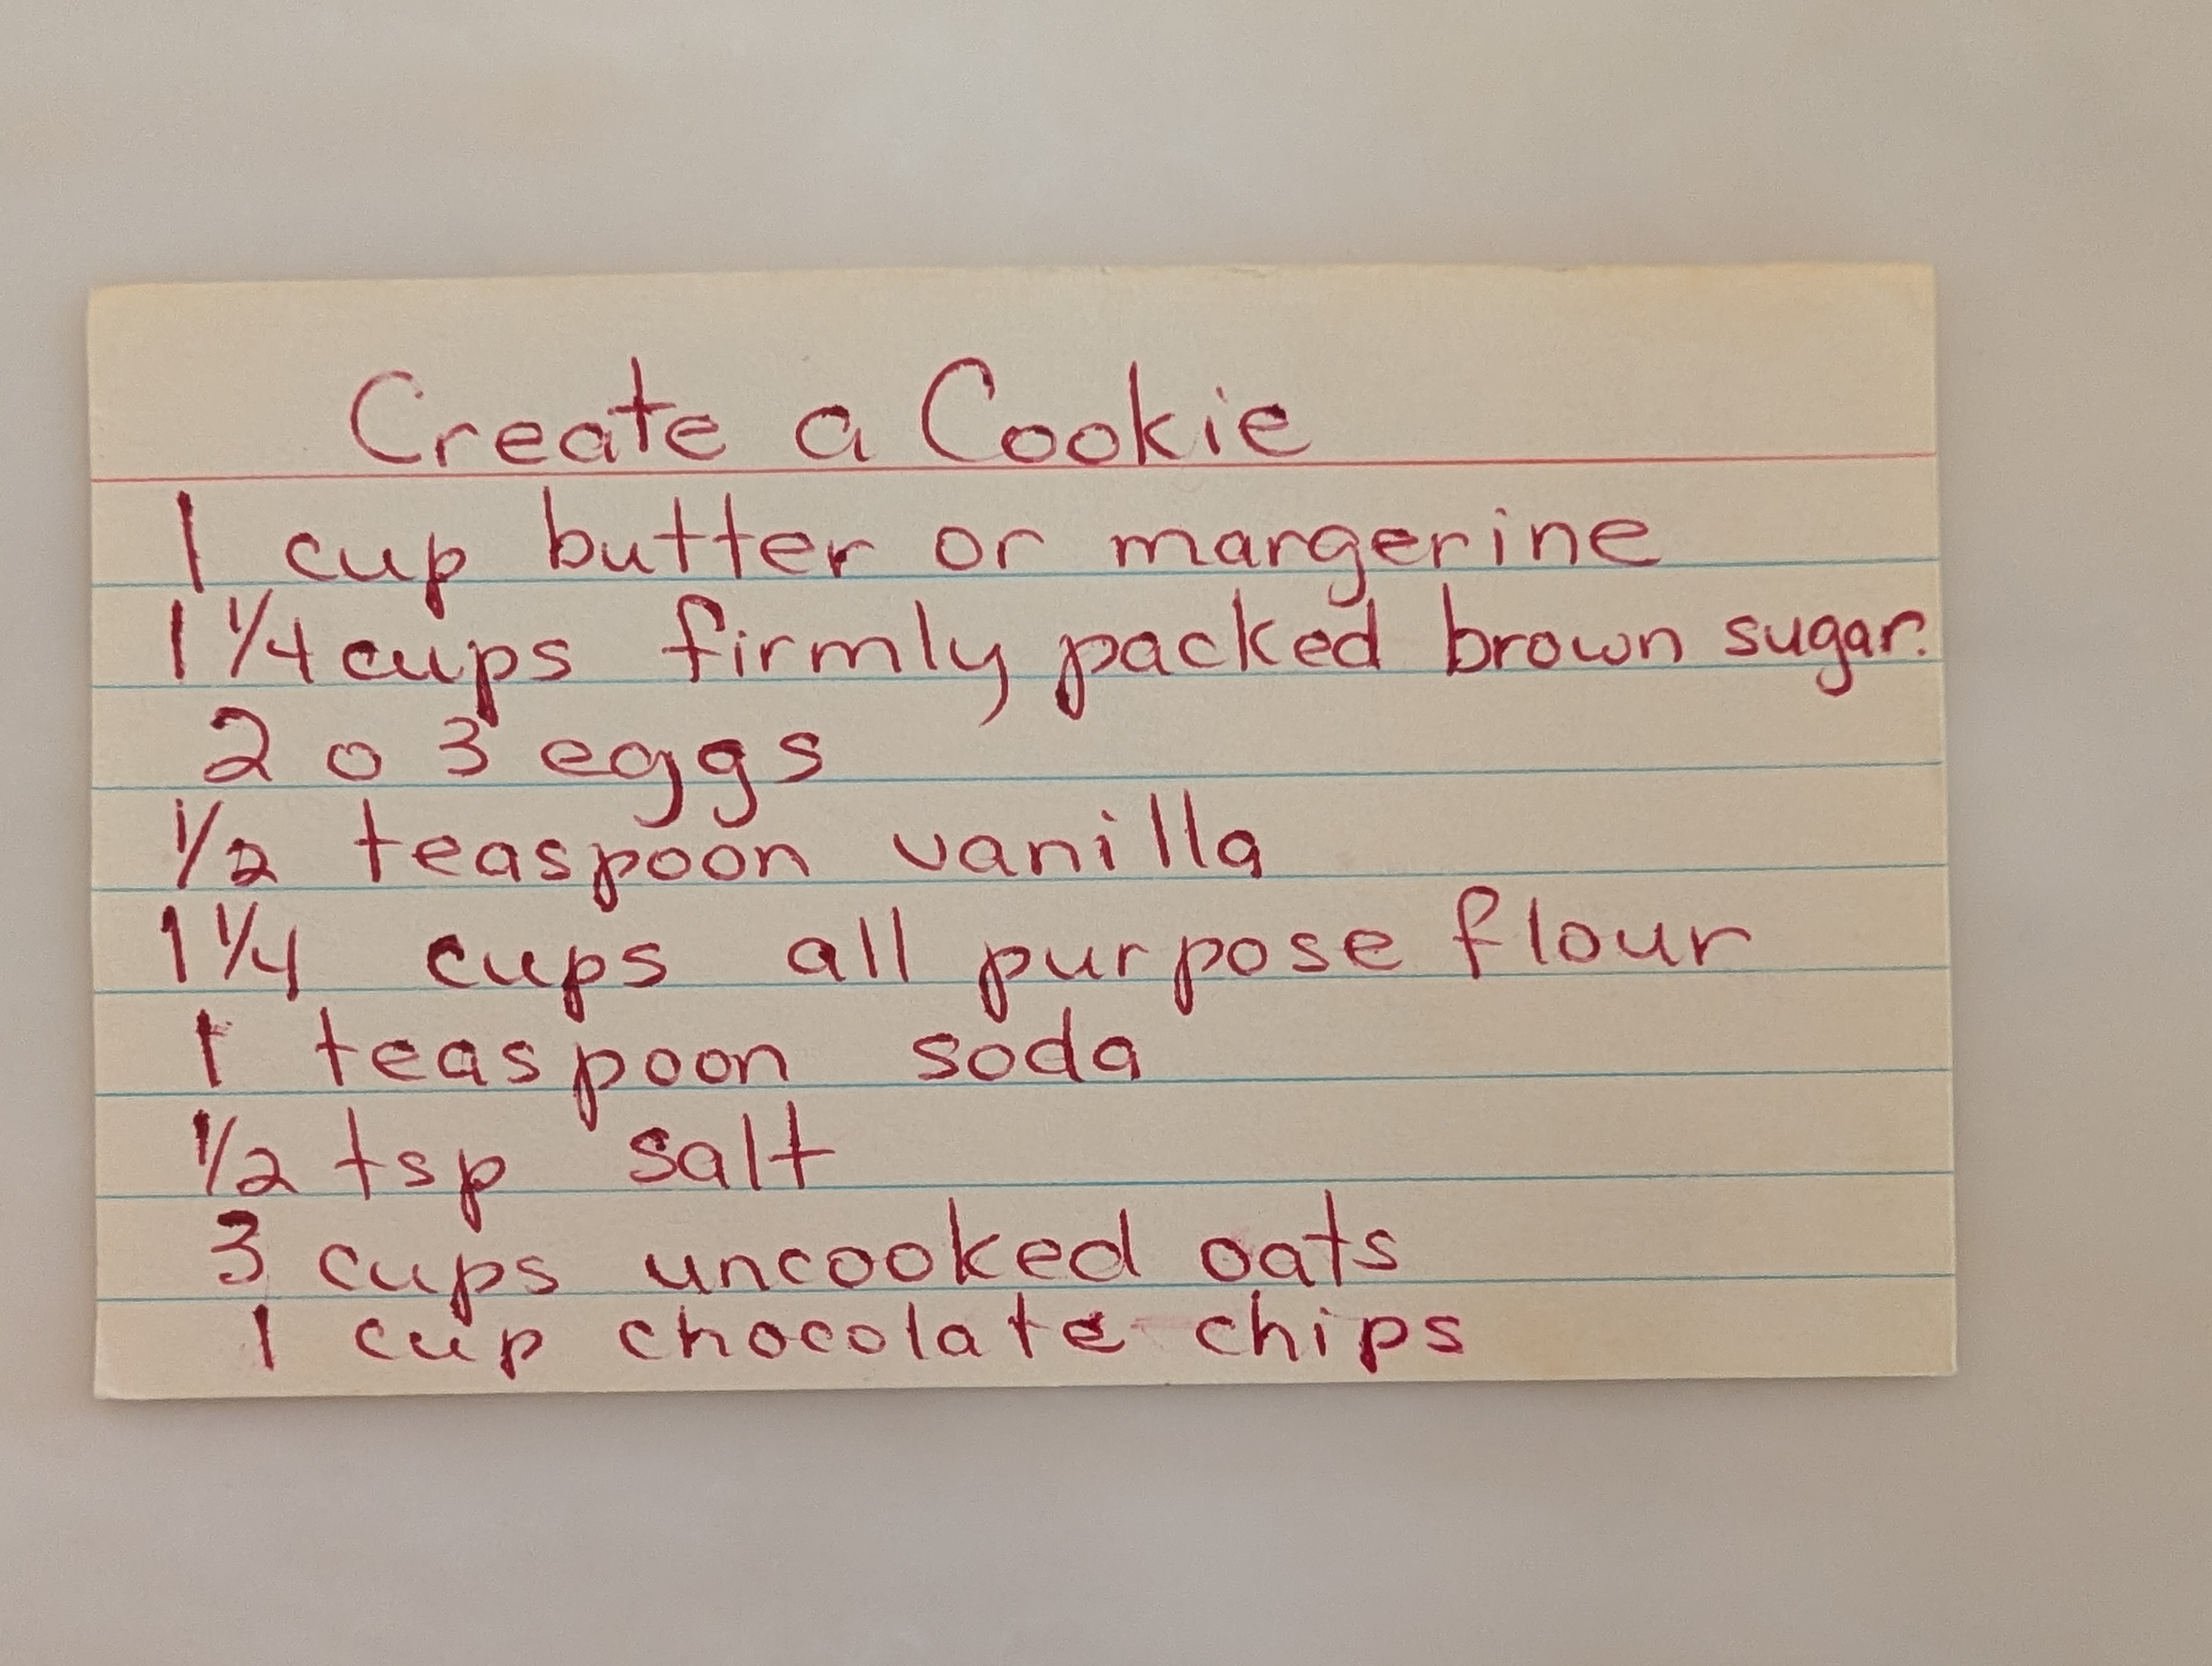 Create a Cookie
1 cup butter or margerine
1 1/4 cups firmly packed brown sugar.
2 o 3 eggs
1/2 teaspoon vanilla
1 1/4 cups all purpose flour
1 teaspoon soda
1/2 tsp salt
3 cups uncooked oats
1 cup chocolate chips